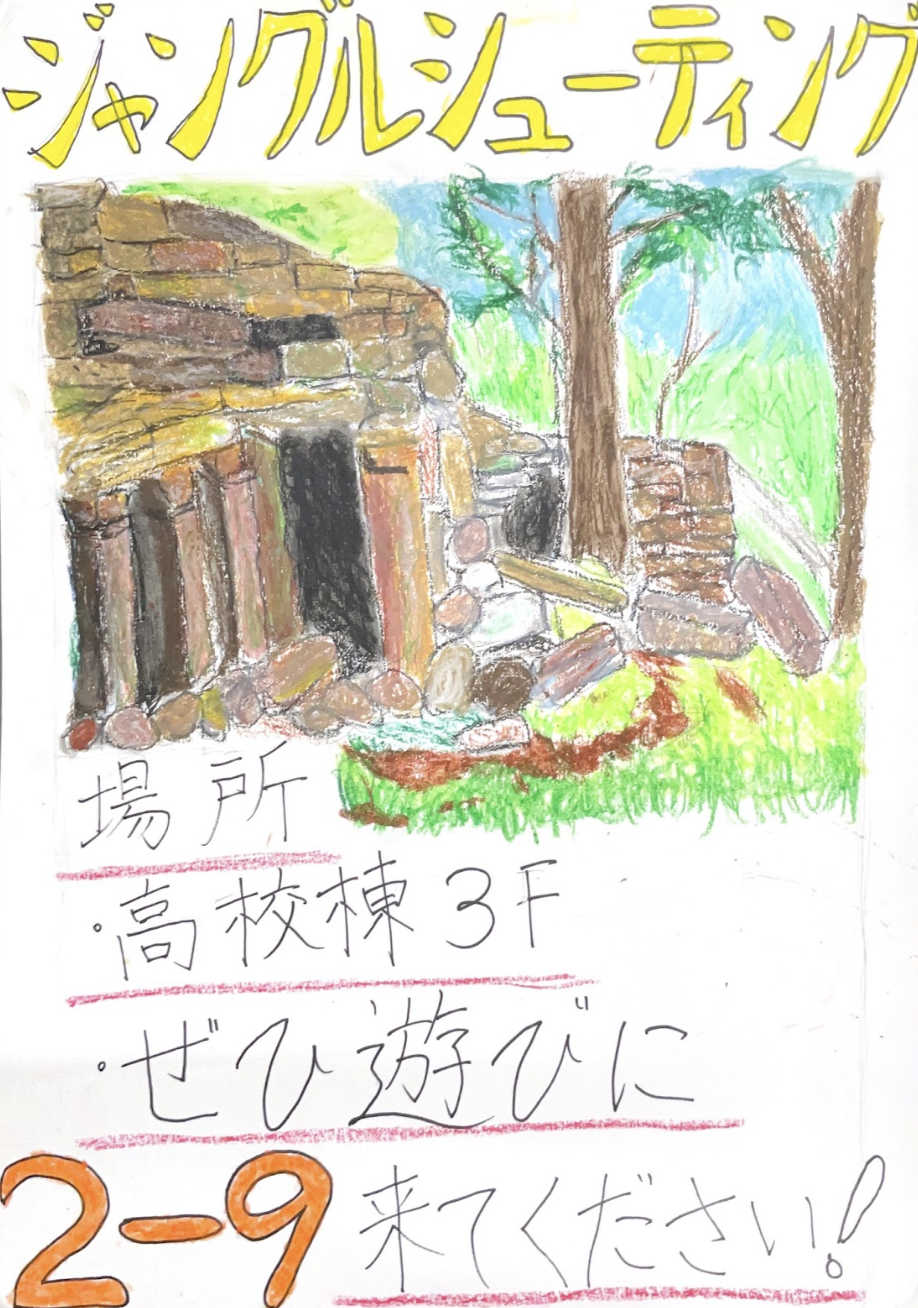 ジャングルシューティング
場所
・高校棟3F
・ぜひ遊びに
2-9
来てください!